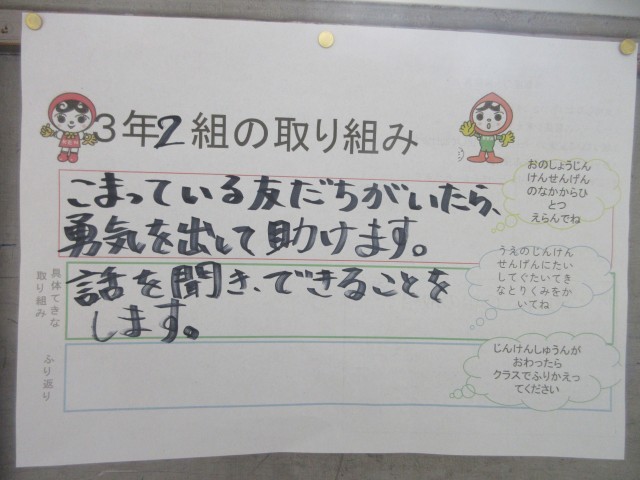 3年2組の取り組み
こまっている友だちがいたら、
勇気を出して助けます。
具体てきな
取り組み
話を聞き、できることを
します。
ふり返り
おのしょうじん
けんせんげん
のなかからひ
とつ
えらんでね
うえのじんけん
せんげんにたい
してぐたいてき
なとりくみをか
いてね
じんけんしゅうんが
おわったら
クラスでふりかえっ
てください